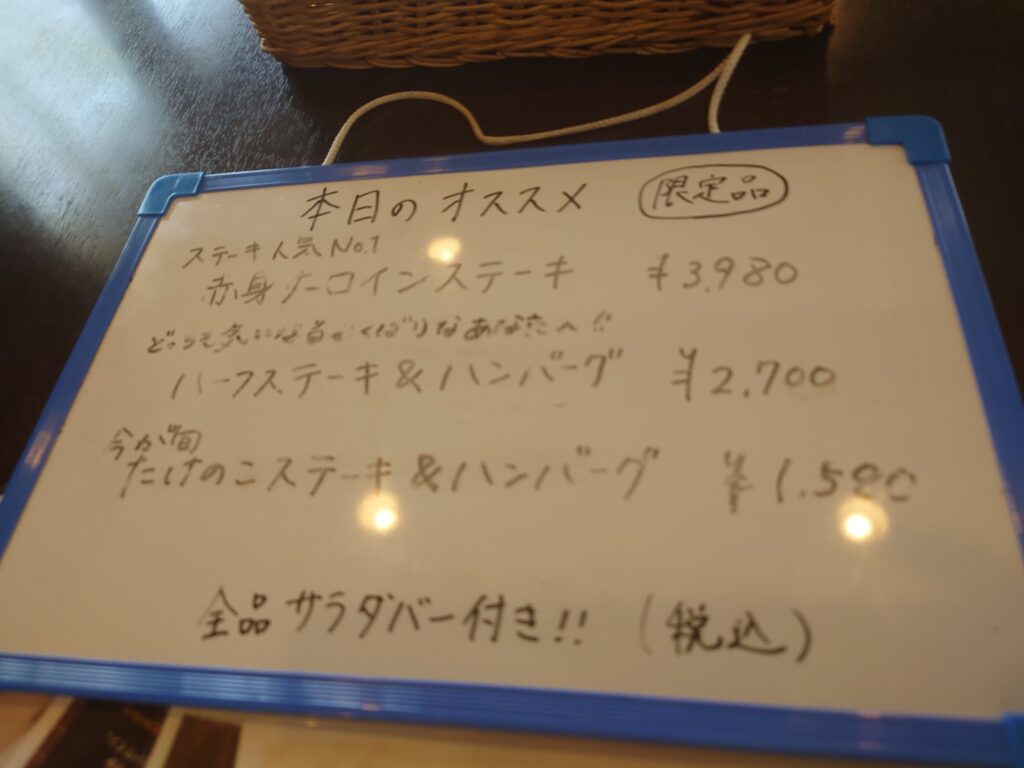 本日のオススメ 限定品
ステーキ人気No.1
赤身サーロインステーキ ¥3,980
どっちも気になるよくばりなあなたへ!!
ハーフステーキ&ハンバーグ ¥2,700
今が旬
たけのこステーキ&ハンバーグ ¥1,580
全品サラダバー付き!! (税込)